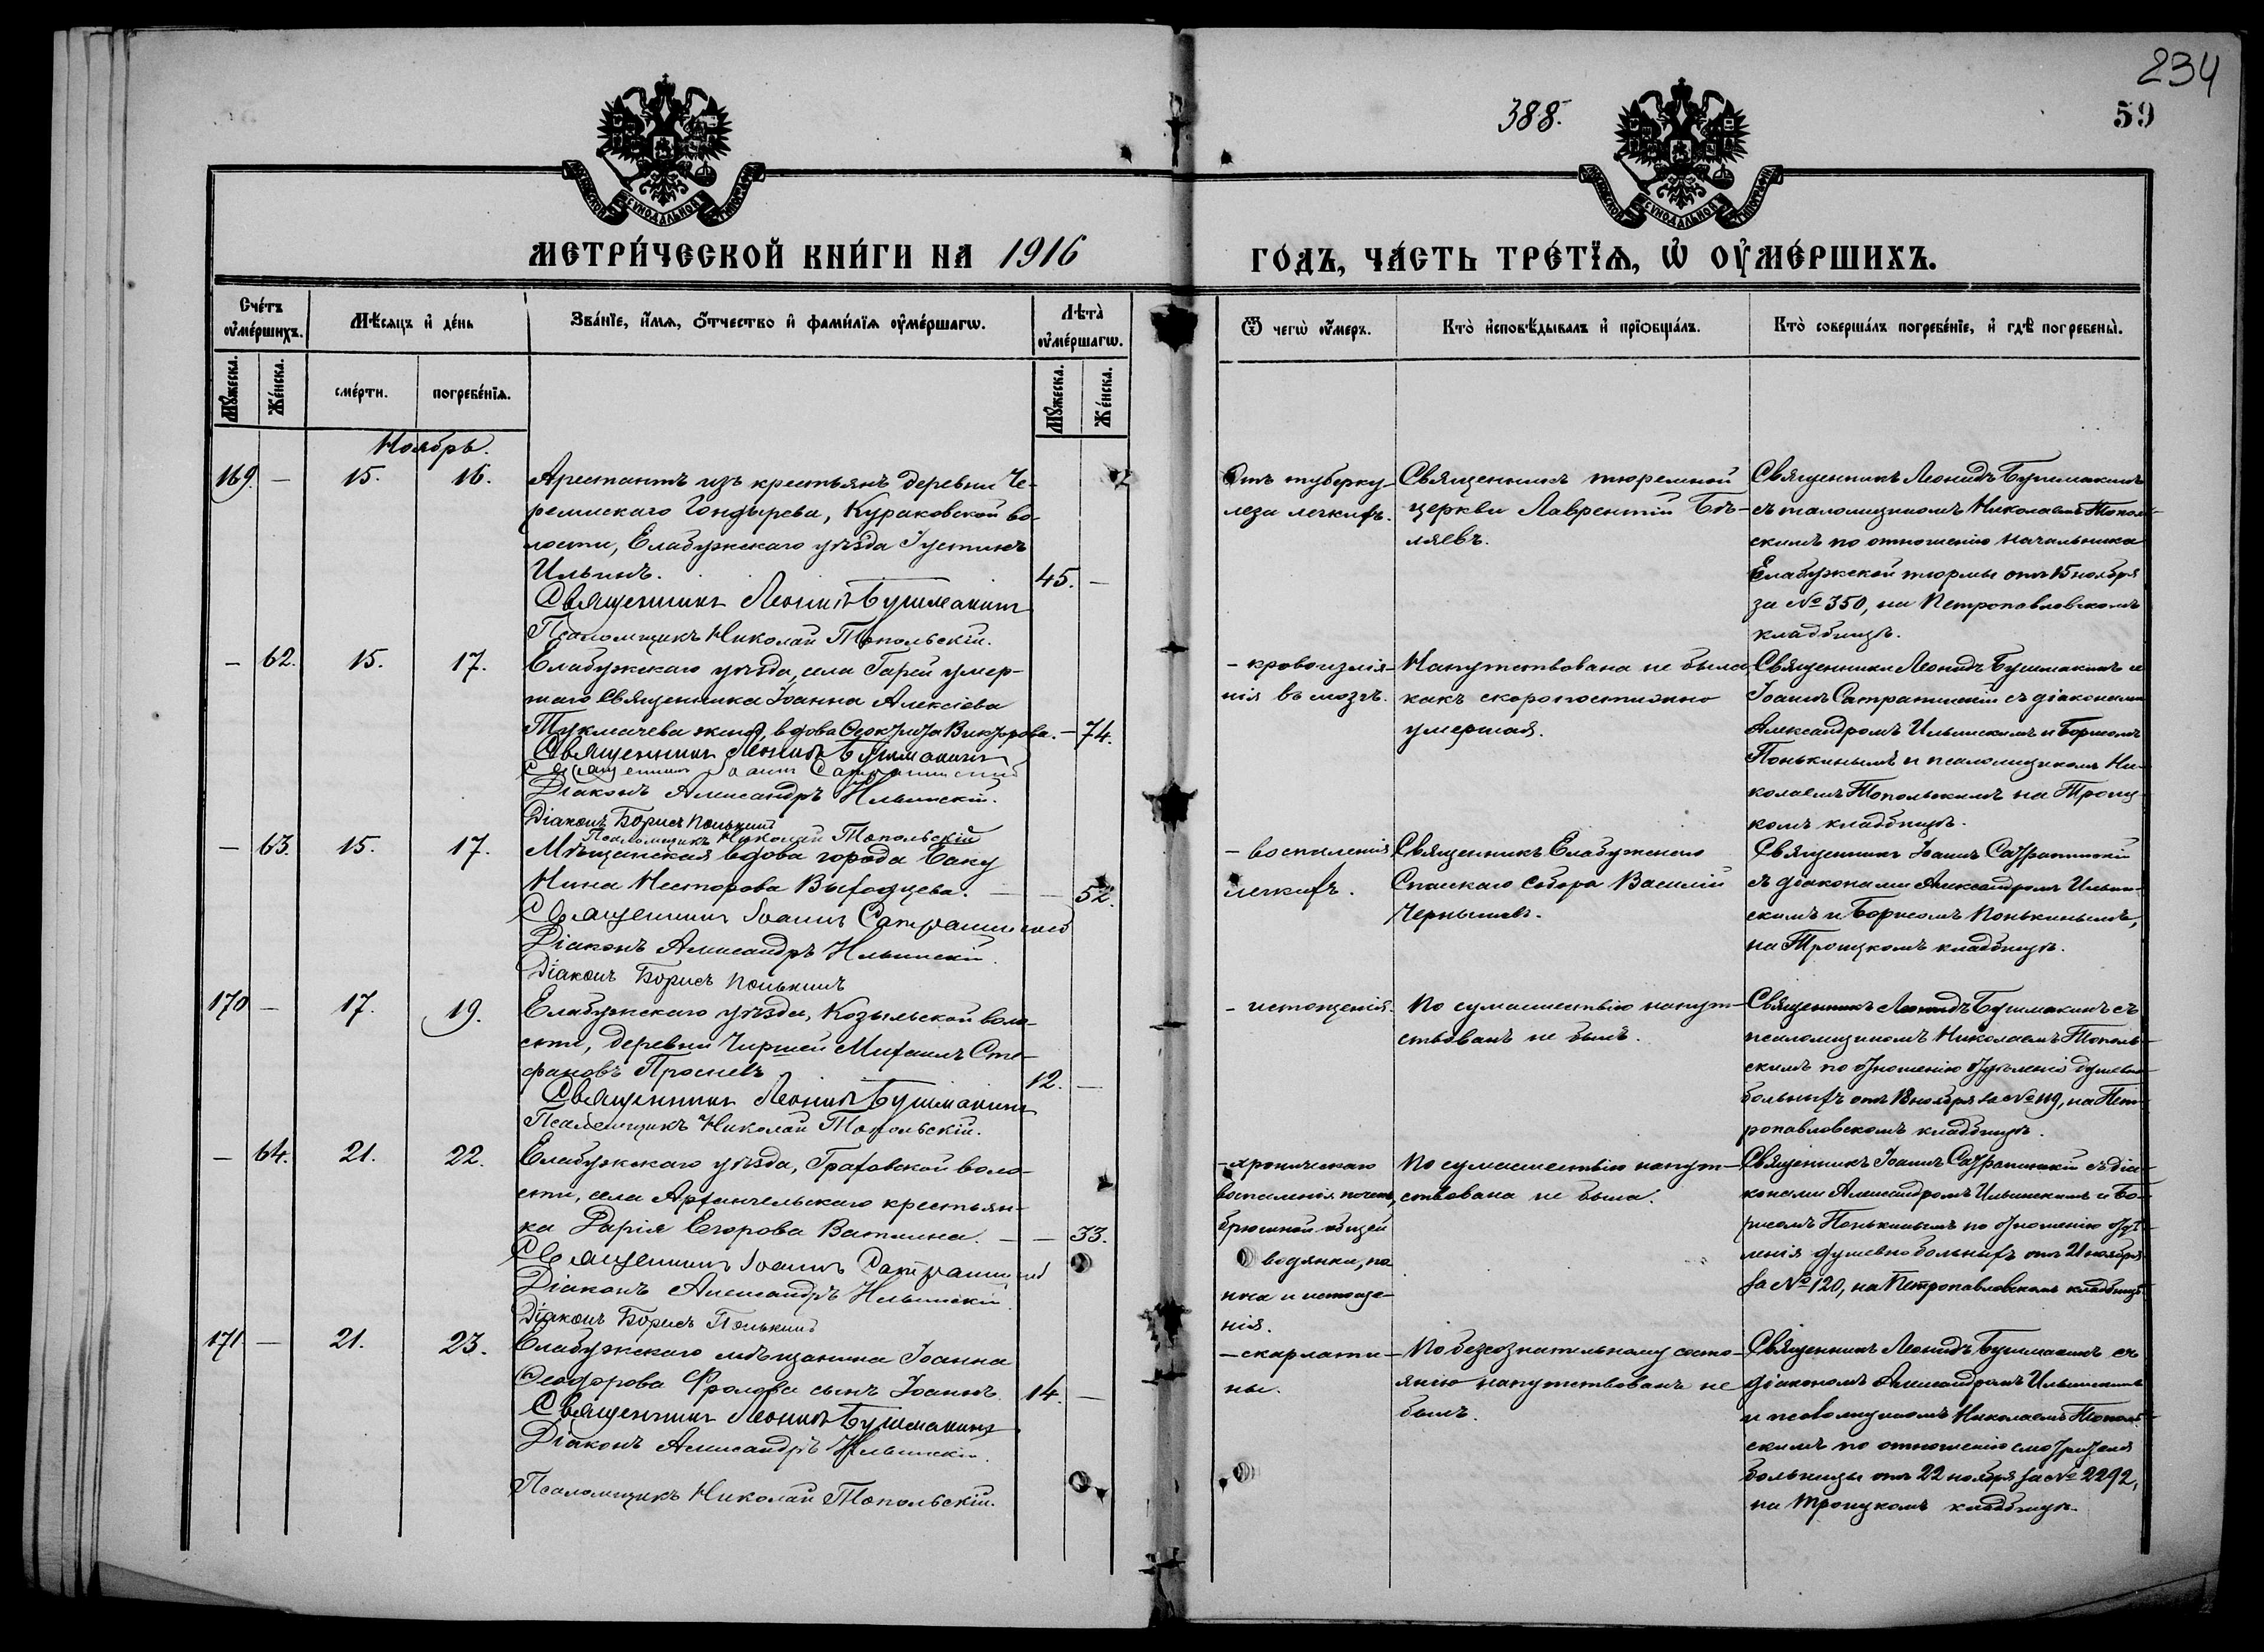 234
388.
59
МЕТРИ́ЧЕСКОЙ КНИ́ГИ НА 1916
ГО́ДЪ, ЧА́СТЬ ТРЕ́ТЇѦ, Ѡ҆ ОУ҆МЕ́РШИХЪ.
Сче́тъ оу҆ме́ршихъ.
Мѣ́сяцъ и҆ де́нь
Зва́нїе, и҆́мя, ѻ҆́тчество и҆ фами́лїя оу҆ме́ршагѡ.
Лѣта̀ оу҆ме́ршагѡ.
Ѿ чегѡ̀ оу҆́меръ.
Кто̀ и҆сповѣ́дывалъ и҆ прїѡбща́лъ.
Кто̀ соверша́лъ погребе́нїе, и҆ гдѣ̀ погребены̀.
Му́жеска.
Же́нска.
сме́рти.
погребе́нїя.
Му́жеска.
Же́нска.
Ноябрь.
169. – 15. 16.
Арестантъ изъ крестьянъ деревни Че-
ремискаго Гондырева, Кураковской во-
лости, Елабужскаго уѣзда Іустинъ
Ильинъ. 45. –
Священникъ Леонидъ Бушмакинъ
Псаломщикъ Николай Топольскій.
Отъ туберку-
леза легкихъ.
Священникъ тюремной
церкви Лаврентій Бѣ-
ляевъ.
Священникъ Леонидъ Бушмакинъ
съ псаломщикомъ Николаемъ Тополь-
скимъ по отношенію начальника
Елабужской тюрмы отъ 15 ноября
за № 350, на Петропавловскомъ
кладбищѣ.
– 62. 15. 17.
Елабужскаго уѣзда, села Гарей умер-
шаго Священника Іоанна Алексіева
Тукмачева жена, вдова Ѳеоктиста Викторова. – 74.
Священникъ Леонидъ Бушмакинъ
Священникъ Іоаннъ Сатрапинскій
Діаконъ Александръ Ильинскій.
Діаконъ Борисъ Понькинъ
Псаломщикъ Николай Топольскій
– кровоизлія-
нія въ мозгъ.
Напутствована не была,
какъ скоропостижно
умершая.
Священники Леонидъ Бушмакинъ и
Іоаннъ Сатрапинскій съ діаконами
Александромъ Ильинскимъ и Борисомъ
Понькинымъ и псаломщикомъ Ни-
колаемъ Топольскимъ на Троиц-
комъ кладбищѣ.
– 63. 15. 17.
Мѣщанская вдова города Баку
Нина Несторова Выходцева. – – 52.
Священникъ Іоаннъ Сатрапинскій
Діаконъ Александръ Ильинскій.
Діаконъ Борисъ Понькинъ
– воспаленія
легкихъ.
Священникъ Елабужскаго
Спасскаго собора Василій
Чернышевъ.
Священникъ Іоаннъ Сатрапинскій
съ діаконами Александромъ Ильин-
скимъ и Борисомъ Понькинымъ,
на Троицкомъ кладбищѣ.
170 – 17. 19.
Елабужскаго уѣзда, Козыльской воло-
сти, деревни Чиршей Михаилъ Сте-
фановъ 12. –
Священникъ Леонидъ Бушмакинъ
Псаломщикъ Николай Топольскій.
– истощенія.
По сумасшествію напут-
ствованъ не былъ.
Священникъ Леонидъ Бушмакинъ съ
псаломщикомъ Николаемъ Тополь-
скимъ по отношенію отдѣленія душевно-
больныхъ отъ 18 ноября за № 119, на Пет-
ропавловскомъ кладбищѣ.
– 64. 21. 22.
Елабужскаго уѣзда, Граховской воло-
сти, села Архангельскаго крестьян-
ка Дарія Егорова Ватлина. – – 33.
Священникъ Іоаннъ Сатрапинскій
Діаконъ Александръ Ильинскій.
Діаконъ Борисъ Понькинъ
– хроническаго
воспаленія почекъ,
брюшной общей
водянки, по
носа и истоще-
нія.
По сумасшествію напут-
ствована не была.
Священникъ Іоаннъ Сатрапинскій съ діа-
конами Александромъ Ильинскимъ и Бо-
рисомъ Понькинымъ по отношенію отдѣ-
ленія душевнобольныхъ отъ 21 ноября
за № 120, на Петропавловскомъ кладбищѣ.
171 – 21. 23.
Елабужскаго мѣщанина Іоанна
Ѳеодорова Фролова сынъ Іоаннъ 14. –
Священникъ Леонидъ Бушмакинъ
Діаконъ Александръ Ильинскій.
Псаломщикъ Николай Топольскій.
– скарлати-
ны.
По безсознательному состо-
янію напутствованъ не
былъ.
Священникъ Леонидъ Бушмакинъ съ
діакономъ Александромъ Ильинскимъ
и псаломщикомъ Николаемъ Тополь-
скимъ по отношенію смотрителя
больницы отъ 22 ноября за № 2292,
на Троицкомъ кладбищѣ.